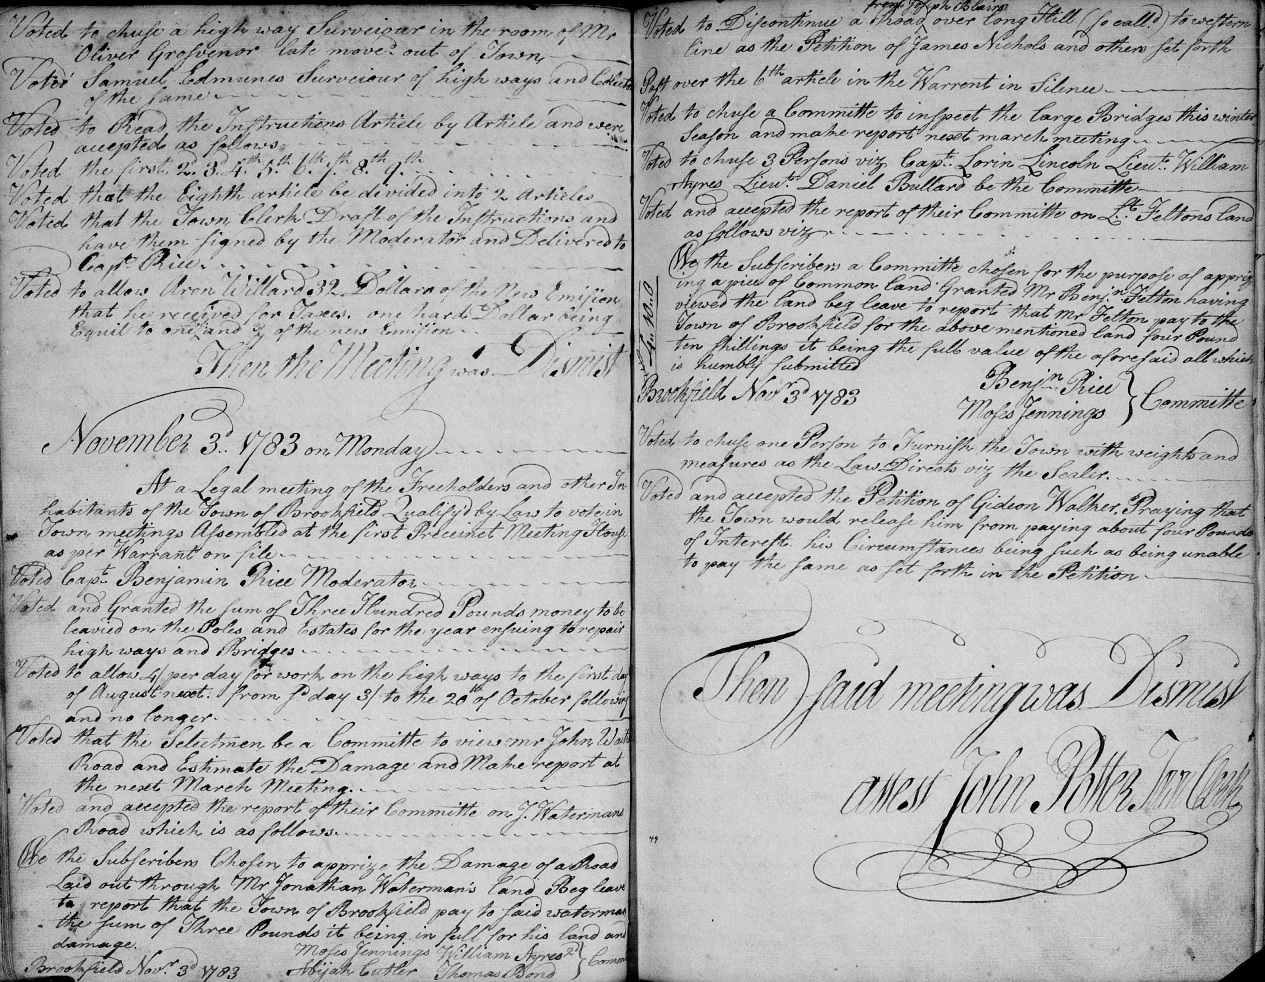 Voted to chuse a high way Surveioar in the room of Mr
Oliver Grosvenor late moved out of Town
Voted Samuel Edmunes Surveiour of high ways and Collector
of the same
Voted to Read the Instructions Article by Article and were
accepted as follows
Voted the first. 2. 3. 4th 5th 6th 7th 8th 9th
Voted that the Eighth article be divided into 2 Articles
Voted that the Town Clerk Draft of the Instructions and
have them signed by the Moderator and Delivered to
Capt. Rice
Voted to allow Aron Willard 32 Dollars of the New Emision
that he received for Taxes. one hard Dollar being
Equil to one and of the new Emision
Then the Meeting was Dismist
November 3d. 1783 on Monday
At a Legal meeting of the Freeholders and other In
habitants of the Town of Brookfield Qualify'd by Law to vote in
Town meetings Assembled at the first Precinct Meeting House
as per Warrant on file
Voted Capt. Benjamin Rice Moderator
Voted and Granted the sum of Three Hundred Pounds money to be
leavied on the Poles and Estates for the year ensuing to repair
high ways and Bridges
Voted to allow 4/ per day for work on the high ways to the first day
of August next. from sd day 3/ to the 20th of October following
and no longer
Voted that the Selectmen be a Committe to view mr John
Road and Estimate the Damage and Make report at
the next March Meeting.
Voted and accepted the report of their Committe on J. Watermans
Road which is as follows
We the Subscribers Chosen to apprize the Damage of a Road
Laid out through Mr Jonathan Waterman's land Beg leave
to report that the Town of Brookfield pay to said waterman
the sum of Three Pounds it being in full for his land and
damage.
Moses Jennings William Ayres 2d
Brookfield Novr. 3d 1783 Abijah Cutler Thomas Bond } Comm
from Joseph Blairs
Voted to Discontinue a Road over long Hill (so calld) to western
line as the Petition of James Nichols and others set forth
Past over the 6th article in the Warrent in Silence
Voted to chuse a Committe to inspect the large Bridges this winter
Season and make report next march meeting
Voted to chuse 3 Persons viz Capt. Lorin Lincoln Lieut. William
Ayres Lieut. Daniel Bullard be the Committe
Voted and accepted the report of their Committe on Lt. Feltons land
as follows viz
We the Subscribers a Committe chosen for the purpose of appriz
ing a piece of Common land Granted Mr Benjn. Felton having
viewed the land beg leave to report that Mr Felton pay to the
Town of Brookfield for the above mentioned land four Pound
ten shillings it being the full value of the aforesaid all which
is humbly submitted
Benjn. Rice
Brookfield Novr 3d 1783 Moses Jennings } Committe
Voted to chuse one Person to Furnish the Town with weights and
measures as the Law Directs viz the Sealer.
Voted and accepted the Petition of Gideon Walker, Praying that
the Town would release him from paying about four Pounds
of Interest. his Circumstances being such as being unable
to pay the same as set forth in the Petition
Then said meeting was Dismist
attest John Potter Town Clerk
49